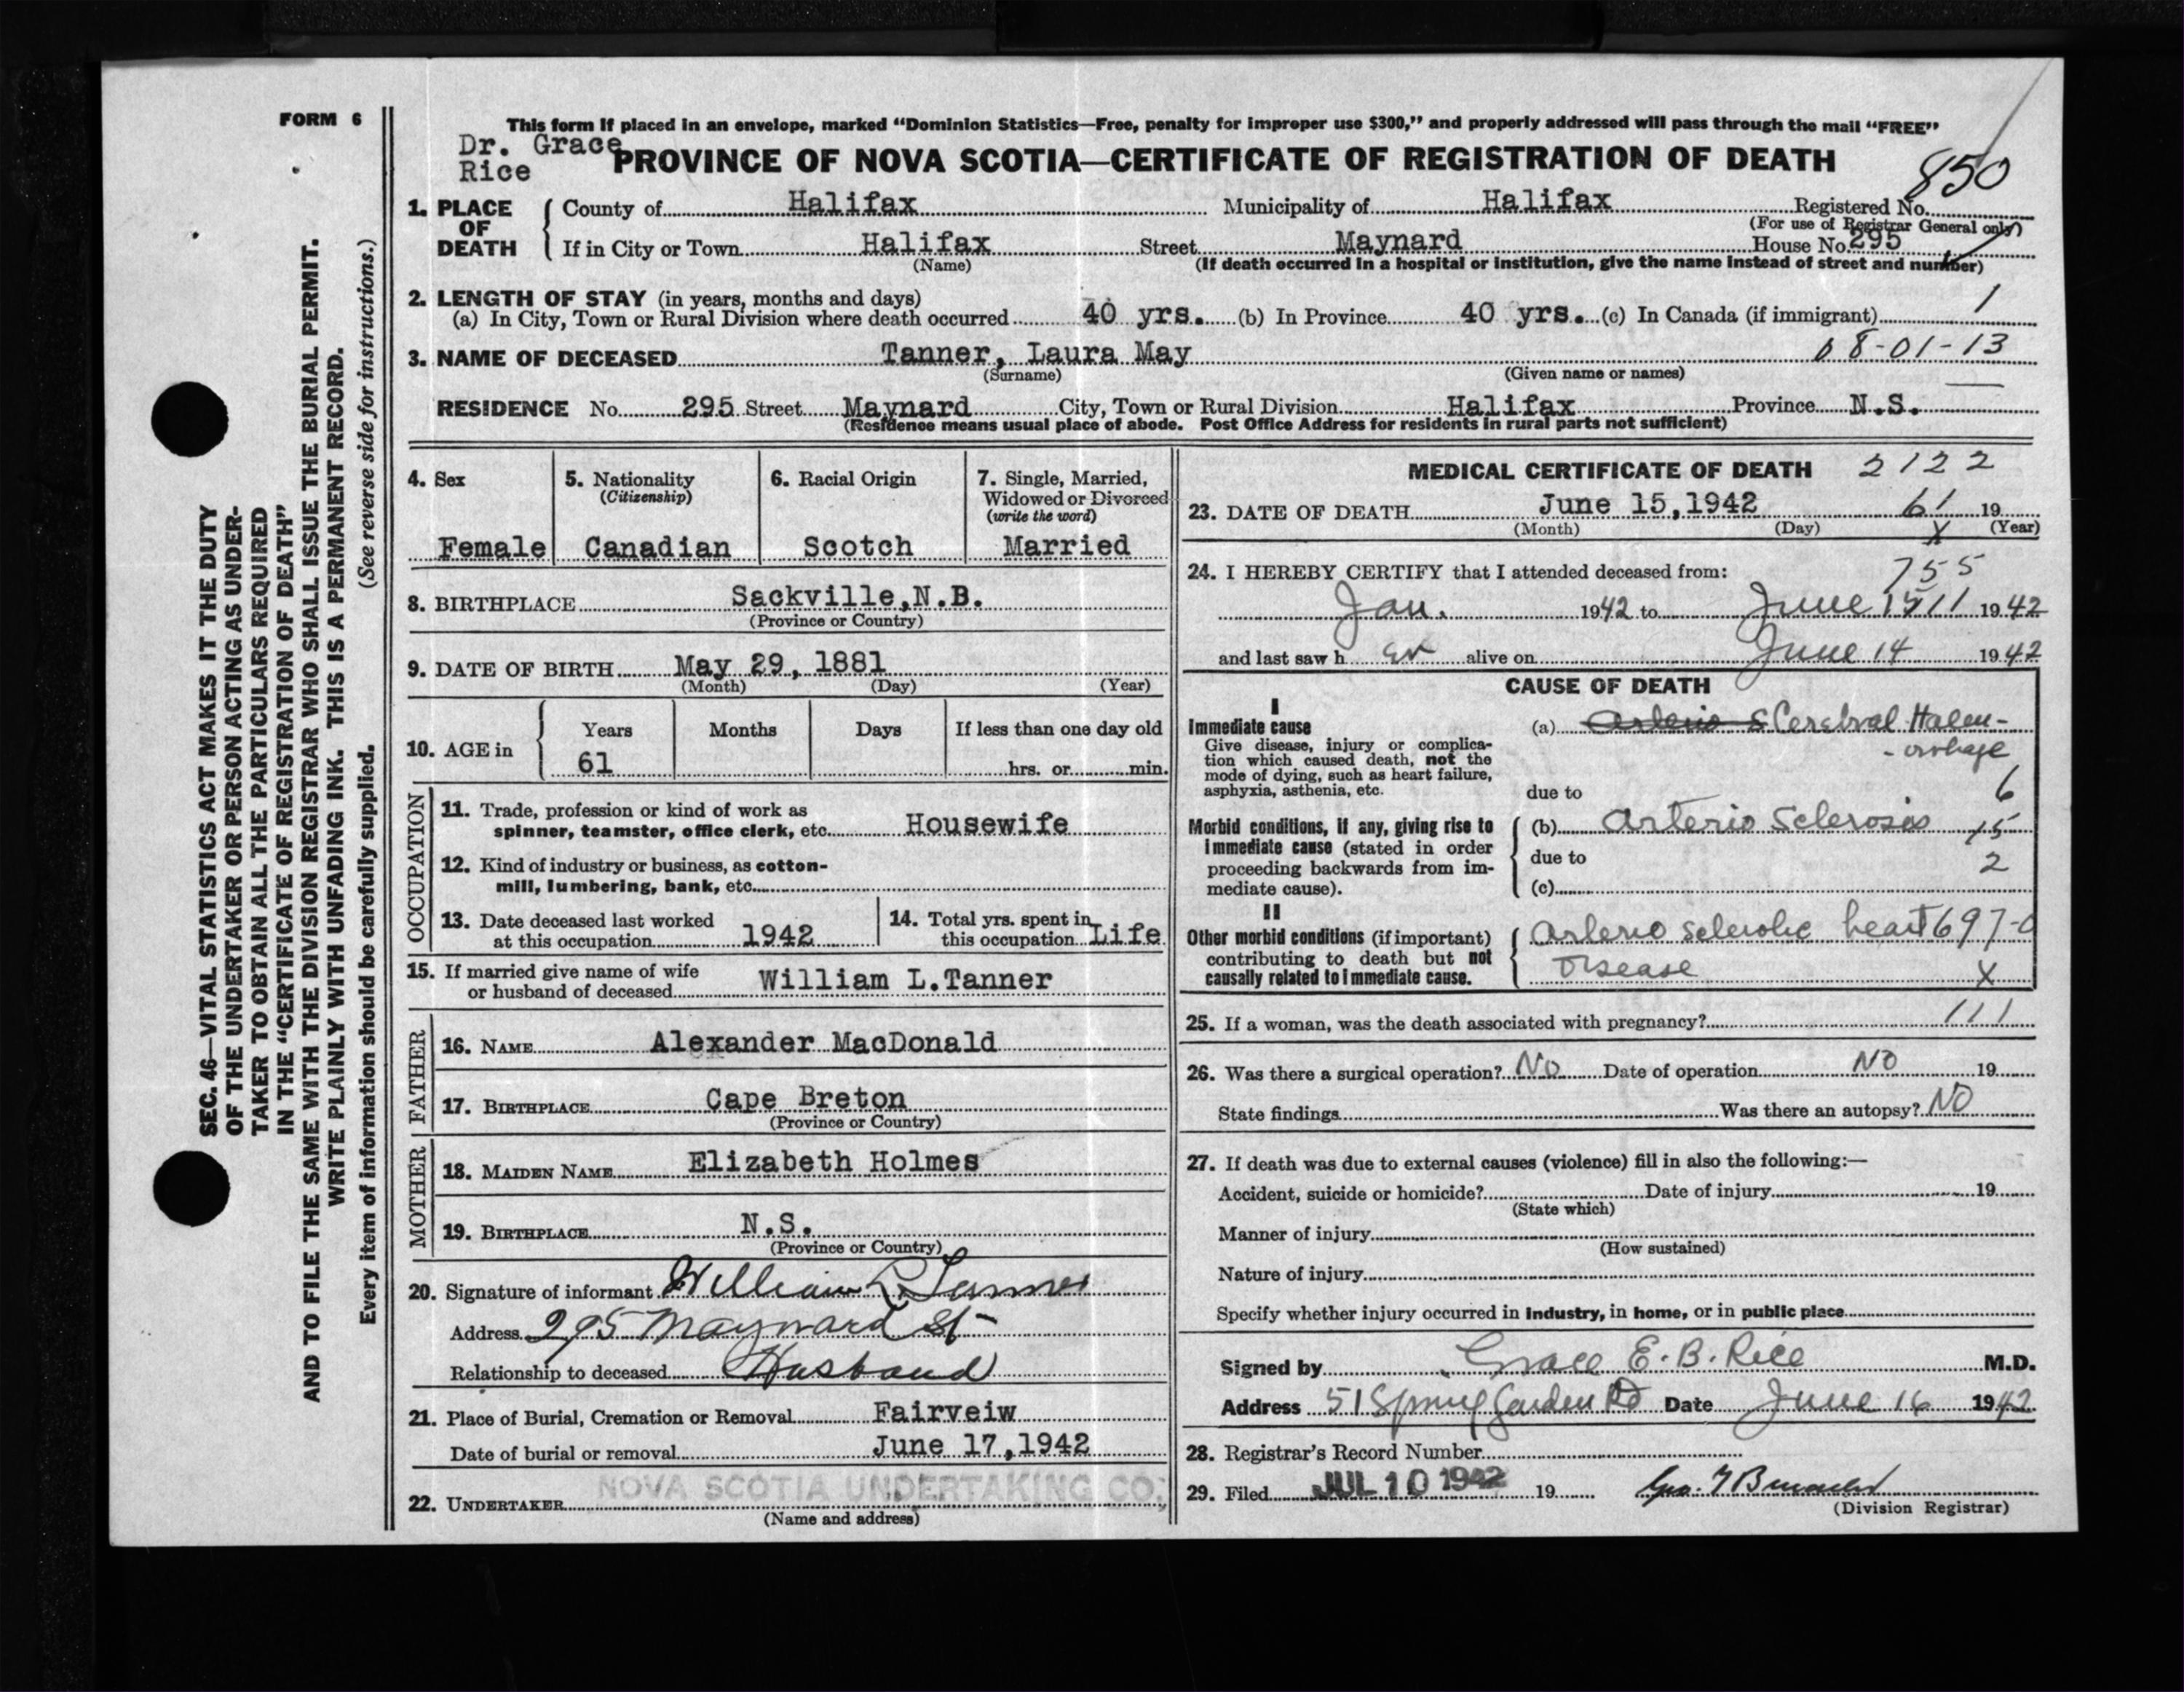 FORM 6
This form if placed in an envelope, marked “Dominion Statistics—Free, penalty for improper use $300,” and properly addressed will pass through the mail “FREE”
Dr. Grace
Rice
PROVINCE OF NOVA SCOTIA—CERTIFICATE OF REGISTRATION OF DEATH
850
1. PLACE OF DEATH
County of Halifax Municipality of Halifax Registered No.
(For use of Registrar General only)
If in City or Town Halifax Street Maynard House No. 295
(Name) (If death occurred in a hospital or institution, give the name instead of street and number)
2. LENGTH OF STAY (in years, months and days) 1
(a) In City, Town or Rural Division where death occurred 40 yrs. (b) In Province 40 yrs. (c) In Canada (if immigrant)
3. NAME OF DECEASED Tanner, Laura May 08-01-13
(Surname) (Given name or names)
RESIDENCE No. 295 Street Maynard City, Town or Rural Division Halifax Province N.S.
(Residence means usual place of abode. Post Office Address for residents in rural parts not sufficient)
4. Sex
Female
5. Nationality
(Citizenship)
Canadian
6. Racial Origin
Scotch
7. Single, Married,
Widowed or Divorced
(write the word)
Married
8. BIRTHPLACE Sackville, N.B.
(Province or Country)
9. DATE OF BIRTH May 29, 1881
(Month) (Day) (Year)
10. AGE in
Years Months Days If less than one day old
61 hrs. or min.
OCCUPATION
11. Trade, profession or kind of work as
spinner, teamster, office clerk, etc. Housewife
12. Kind of industry or business, as cotton-
mill, lumbering, bank, etc.
13. Date deceased last worked
at this occupation 1942
14. Total yrs. spent in
this occupation Life
15. If married give name of wife
or husband of deceased William L. Tanner
FATHER
16. NAME Alexander MacDonald
17. BIRTHPLACE Cape Breton
(Province or Country)
MOTHER
18. MAIDEN NAME Elizabeth Holmes
19. BIRTHPLACE N.S.
(Province or Country)
20. Signature of informant William L. Tanner
Address 295 Maynard St
Relationship to deceased Husband
21. Place of Burial, Cremation or Removal Fairveiw
Date of burial or removal June 17, 1942
22. UNDERTAKER NOVA SCOTIA UNDERTAKING CO.
(Name and address)
MEDICAL CERTIFICATE OF DEATH 2122
23. DATE OF DEATH June 15, 1942 61 19
(Month) (Day) X (Year)
24. I HEREBY CERTIFY that I attended deceased from: 755
Jan. 1942 to June 15 11 1942
and last saw her alive on June 14 1942
CAUSE OF DEATH
I
Immediate cause
Give disease, injury or complica-
tion which caused death, not the
mode of dying, such as heart failure,
asphyxia, asthenia, etc.
(a) Arterio S Cerebral Haem-
-orrhage
due to 6
Morbid conditions, if any, giving rise to
immediate cause (stated in order
proceeding backwards from im-
mediate cause).
(b) Arterio Sclerosis 15
due to 2
(c)
II
Other morbid conditions (if important)
contributing to death but not
causally related to immediate cause.
Arterio sclerotic heart 697-0
Disease X
25. If a woman, was the death associated with pregnancy? 111
26. Was there a surgical operation? No Date of operation NO 19
State findings Was there an autopsy? NO
27. If death was due to external causes (violence) fill in also the following:—
Accident, suicide or homicide? Date of injury 19
(State which)
Manner of injury
(How sustained)
Nature of injury
Specify whether injury occurred in industry, in home, or in public place
Signed by Grace E. B. Rice M.D.
Address 51 Spring Garden Rd Date June 16 1942
28. Registrar's Record Number
29. Filed JUL 10 1942 19
(Division Registrar)
SEC. 46—VITAL STATISTICS ACT MAKES IT THE DUTY
OF THE UNDERTAKER OR PERSON ACTING AS UNDER-
TAKER TO OBTAIN ALL THE PARTICULARS REQUIRED
IN THE “CERTIFICATE OF REGISTRATION OF DEATH”
AND TO FILE THE SAME WITH THE DIVISION REGISTRAR WHO SHALL ISSUE THE BURIAL PERMIT.
WRITE PLAINLY WITH UNFADING INK. THIS IS A PERMANENT RECORD.
Every item of information should be carefully supplied. (See reverse side for instructions.)